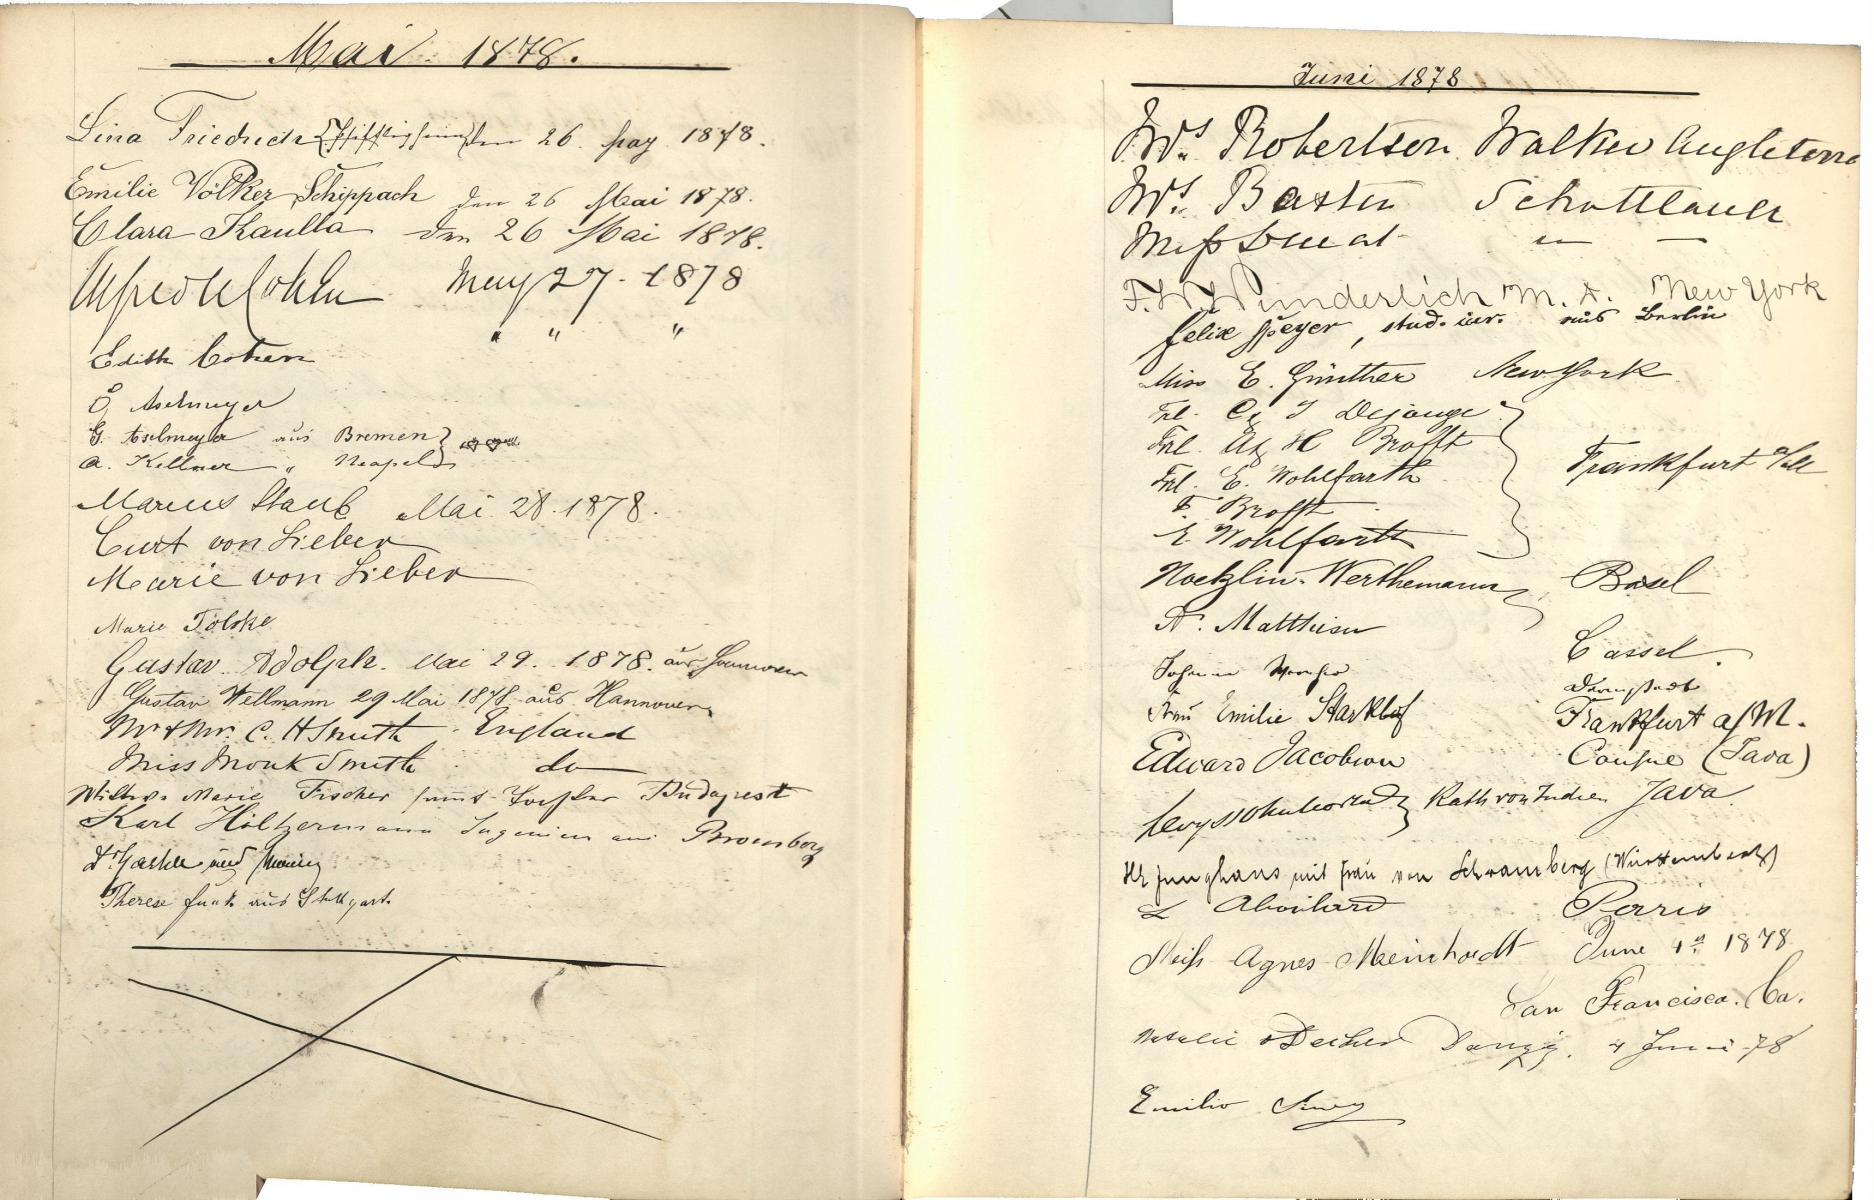 Mai 1878.
Lina Friedrich den 26. May 1878.
Emilie Völker Schippach den 26 Mai 1878.
Clara Kaulla den 26 Mai 1878.
Alfred May 27. 1878
" " "
Edith Cohen
O. Aselmeyer
G. Aselmeyer aus Bremen
A. Kellner " Neapel
Marcus Staub Mai 28. 1878.
Curt von Sieber
Marie von Sieber
Marie Tölske
Gustav Adolph. Mai 29. 1878. aus Hannover
Gustav Wellmann 29 Mai 1878 aus Hannover
Mr & Mrs. C. H Smith England
Miss Monk Smith do
Marie Fischer Budapest
Karl Höltzermann Ingenieur aus Bromberg
Dr und
Therese Funk aus Stuttgart.
Juni 1878
Mrs. Robertson Walker Angleterre
Mrs. Baxter Schottland
Miss — " —
F. W. Wunderlich M. D. New York
Felix Speyer, stud. iur. aus Berlin
Miss E. Günther New York
Frl. C & J Dejonge
Frl. A & H Brofft
Frl. E. Wohlfarth Frankfurt a/M
F. Brofft
E Wohlfarth
Noetzlin-Werthemann, Basel
A. Matthieu
Cassel.
Darmstadt
Frau Emilie Starklof Frankfurt a/M.
Edward Jacobson Consul (Java)
Rath von Indien Java
Junghans mit Frau von Schramberg (Württemberg)
Paris
Miss Agnes Meinhardt June 4th 1878
San Francisco. Ca.
Natalie Decker Danzig. 4 Juni 78
Emilio